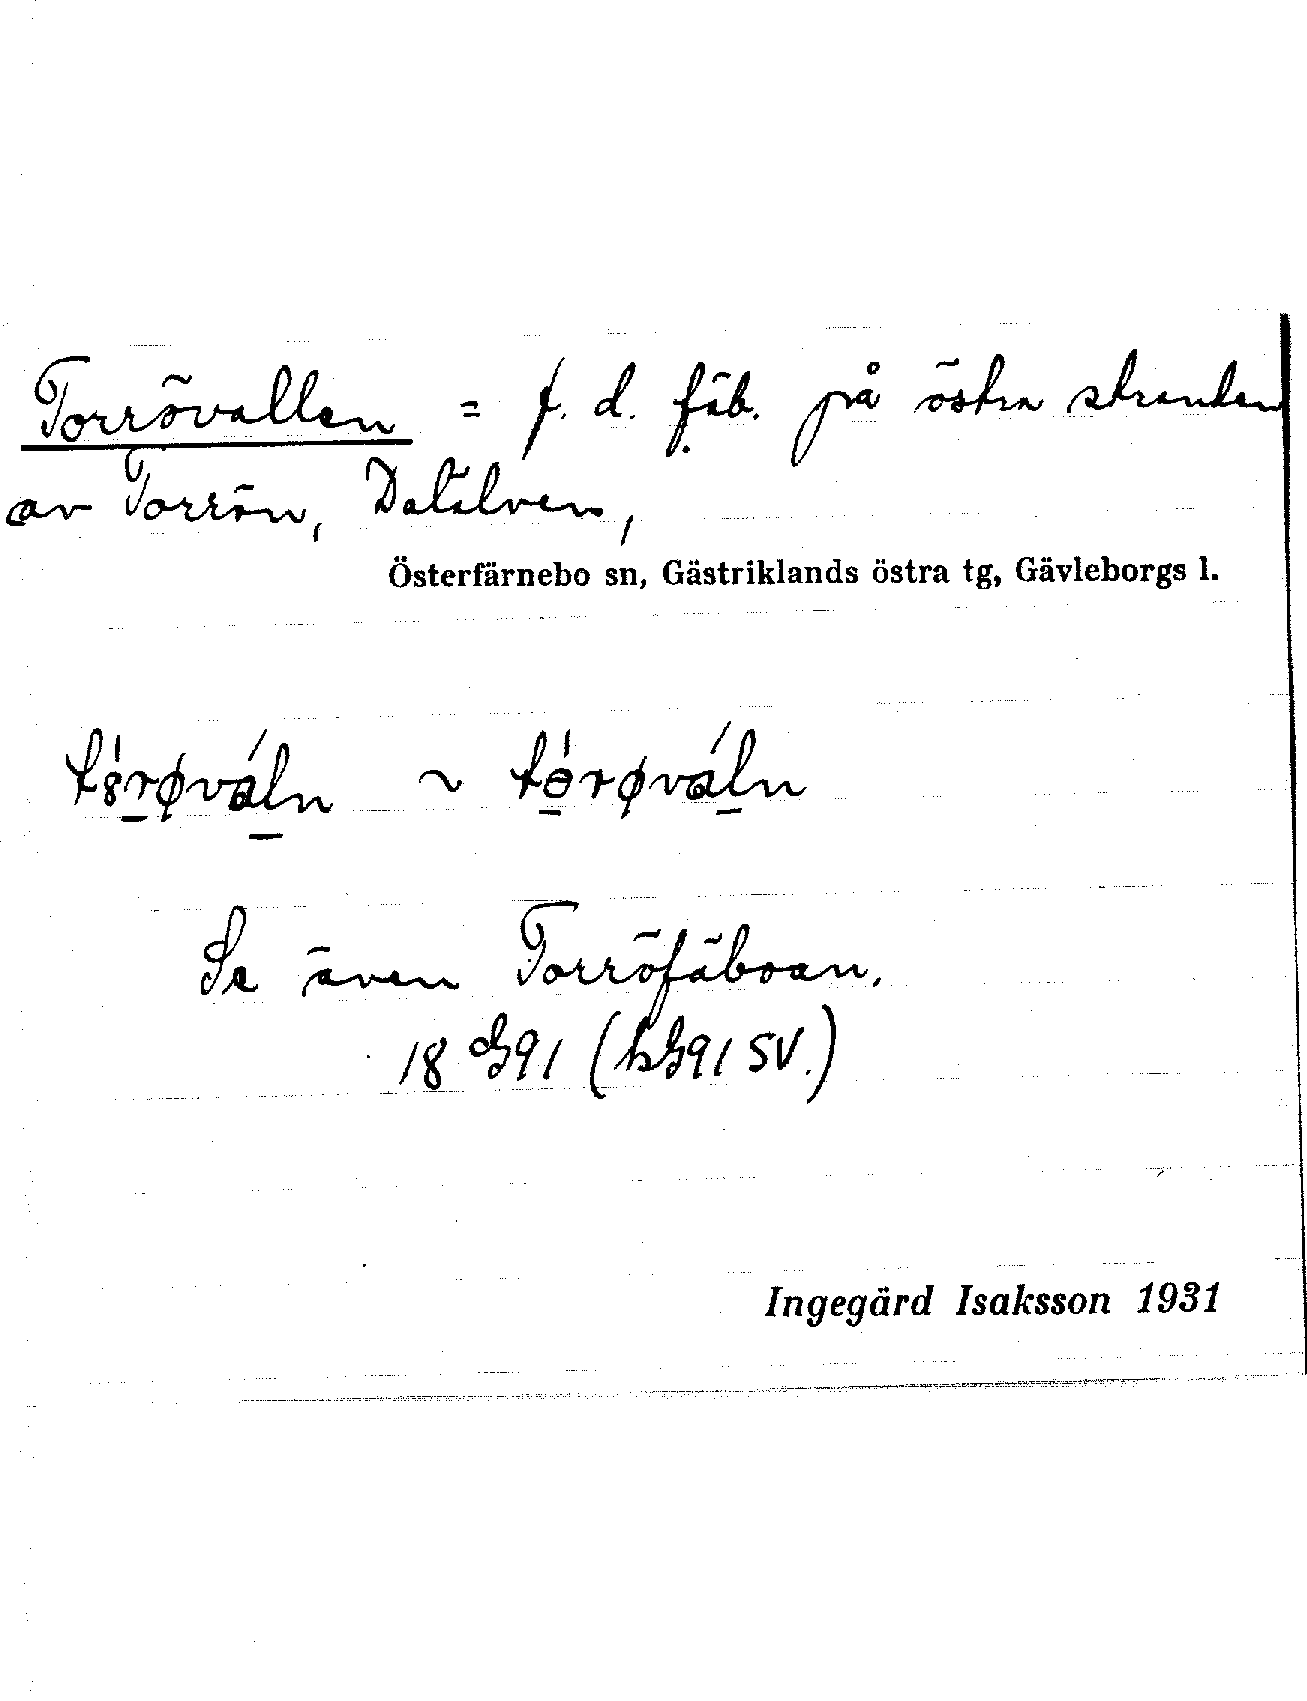 Torrövallen = f. d. fäb. på östra stranden
av Torrön, Dalälven,
Österfärnebo sn, Gästriklands östra tg, Gävleborgs l.
Se även Torröfäboan.
Ingegärd Isaksson 1931